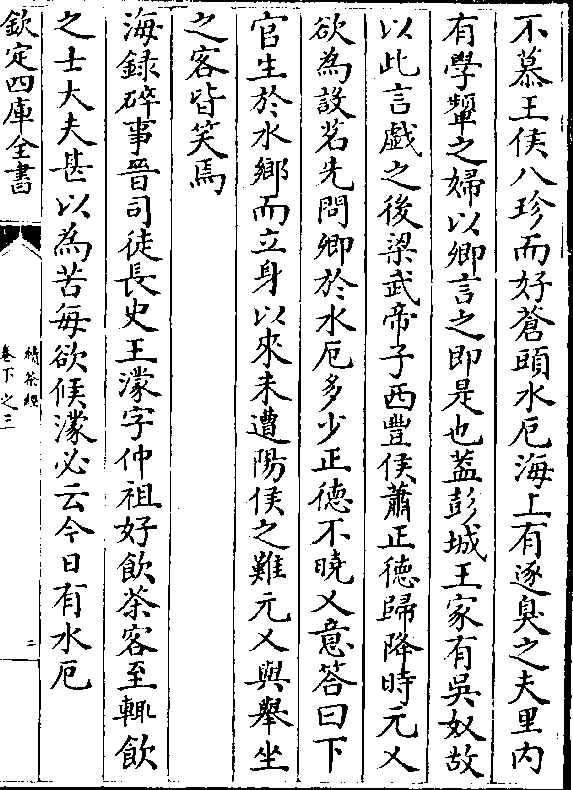 不慕王侯八珍而好蒼頭水厄海上有逐臭之夫里内
有學顰之婦以卿言之即是也葢彭城王家有吳奴故
以此言戲之後梁武帝子西豐侯蕭正德歸降時元乂
欲為設茗先問卿於水厄多少正德不曉乂意答曰下
官生於水鄉而立身以來未遭陽侯之難元乂與舉坐
之客皆笑焉
海録碎事晉司徒長史王濛字仲祖好飲茶客至輒飲
之士大夫甚以為苦每欲候濛必云今日有水厄
欽定四庫全書
續茶經
卷下之三
三